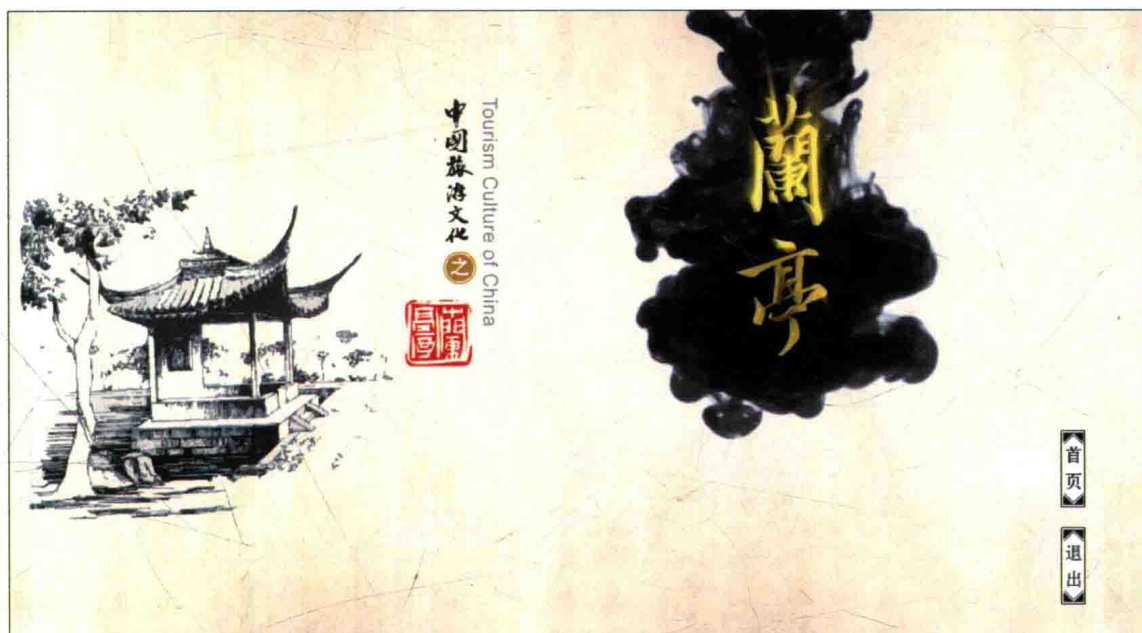 中國旅游文化
之
Tourism Culture of China
蘭亭
蘭亭
首页
退出